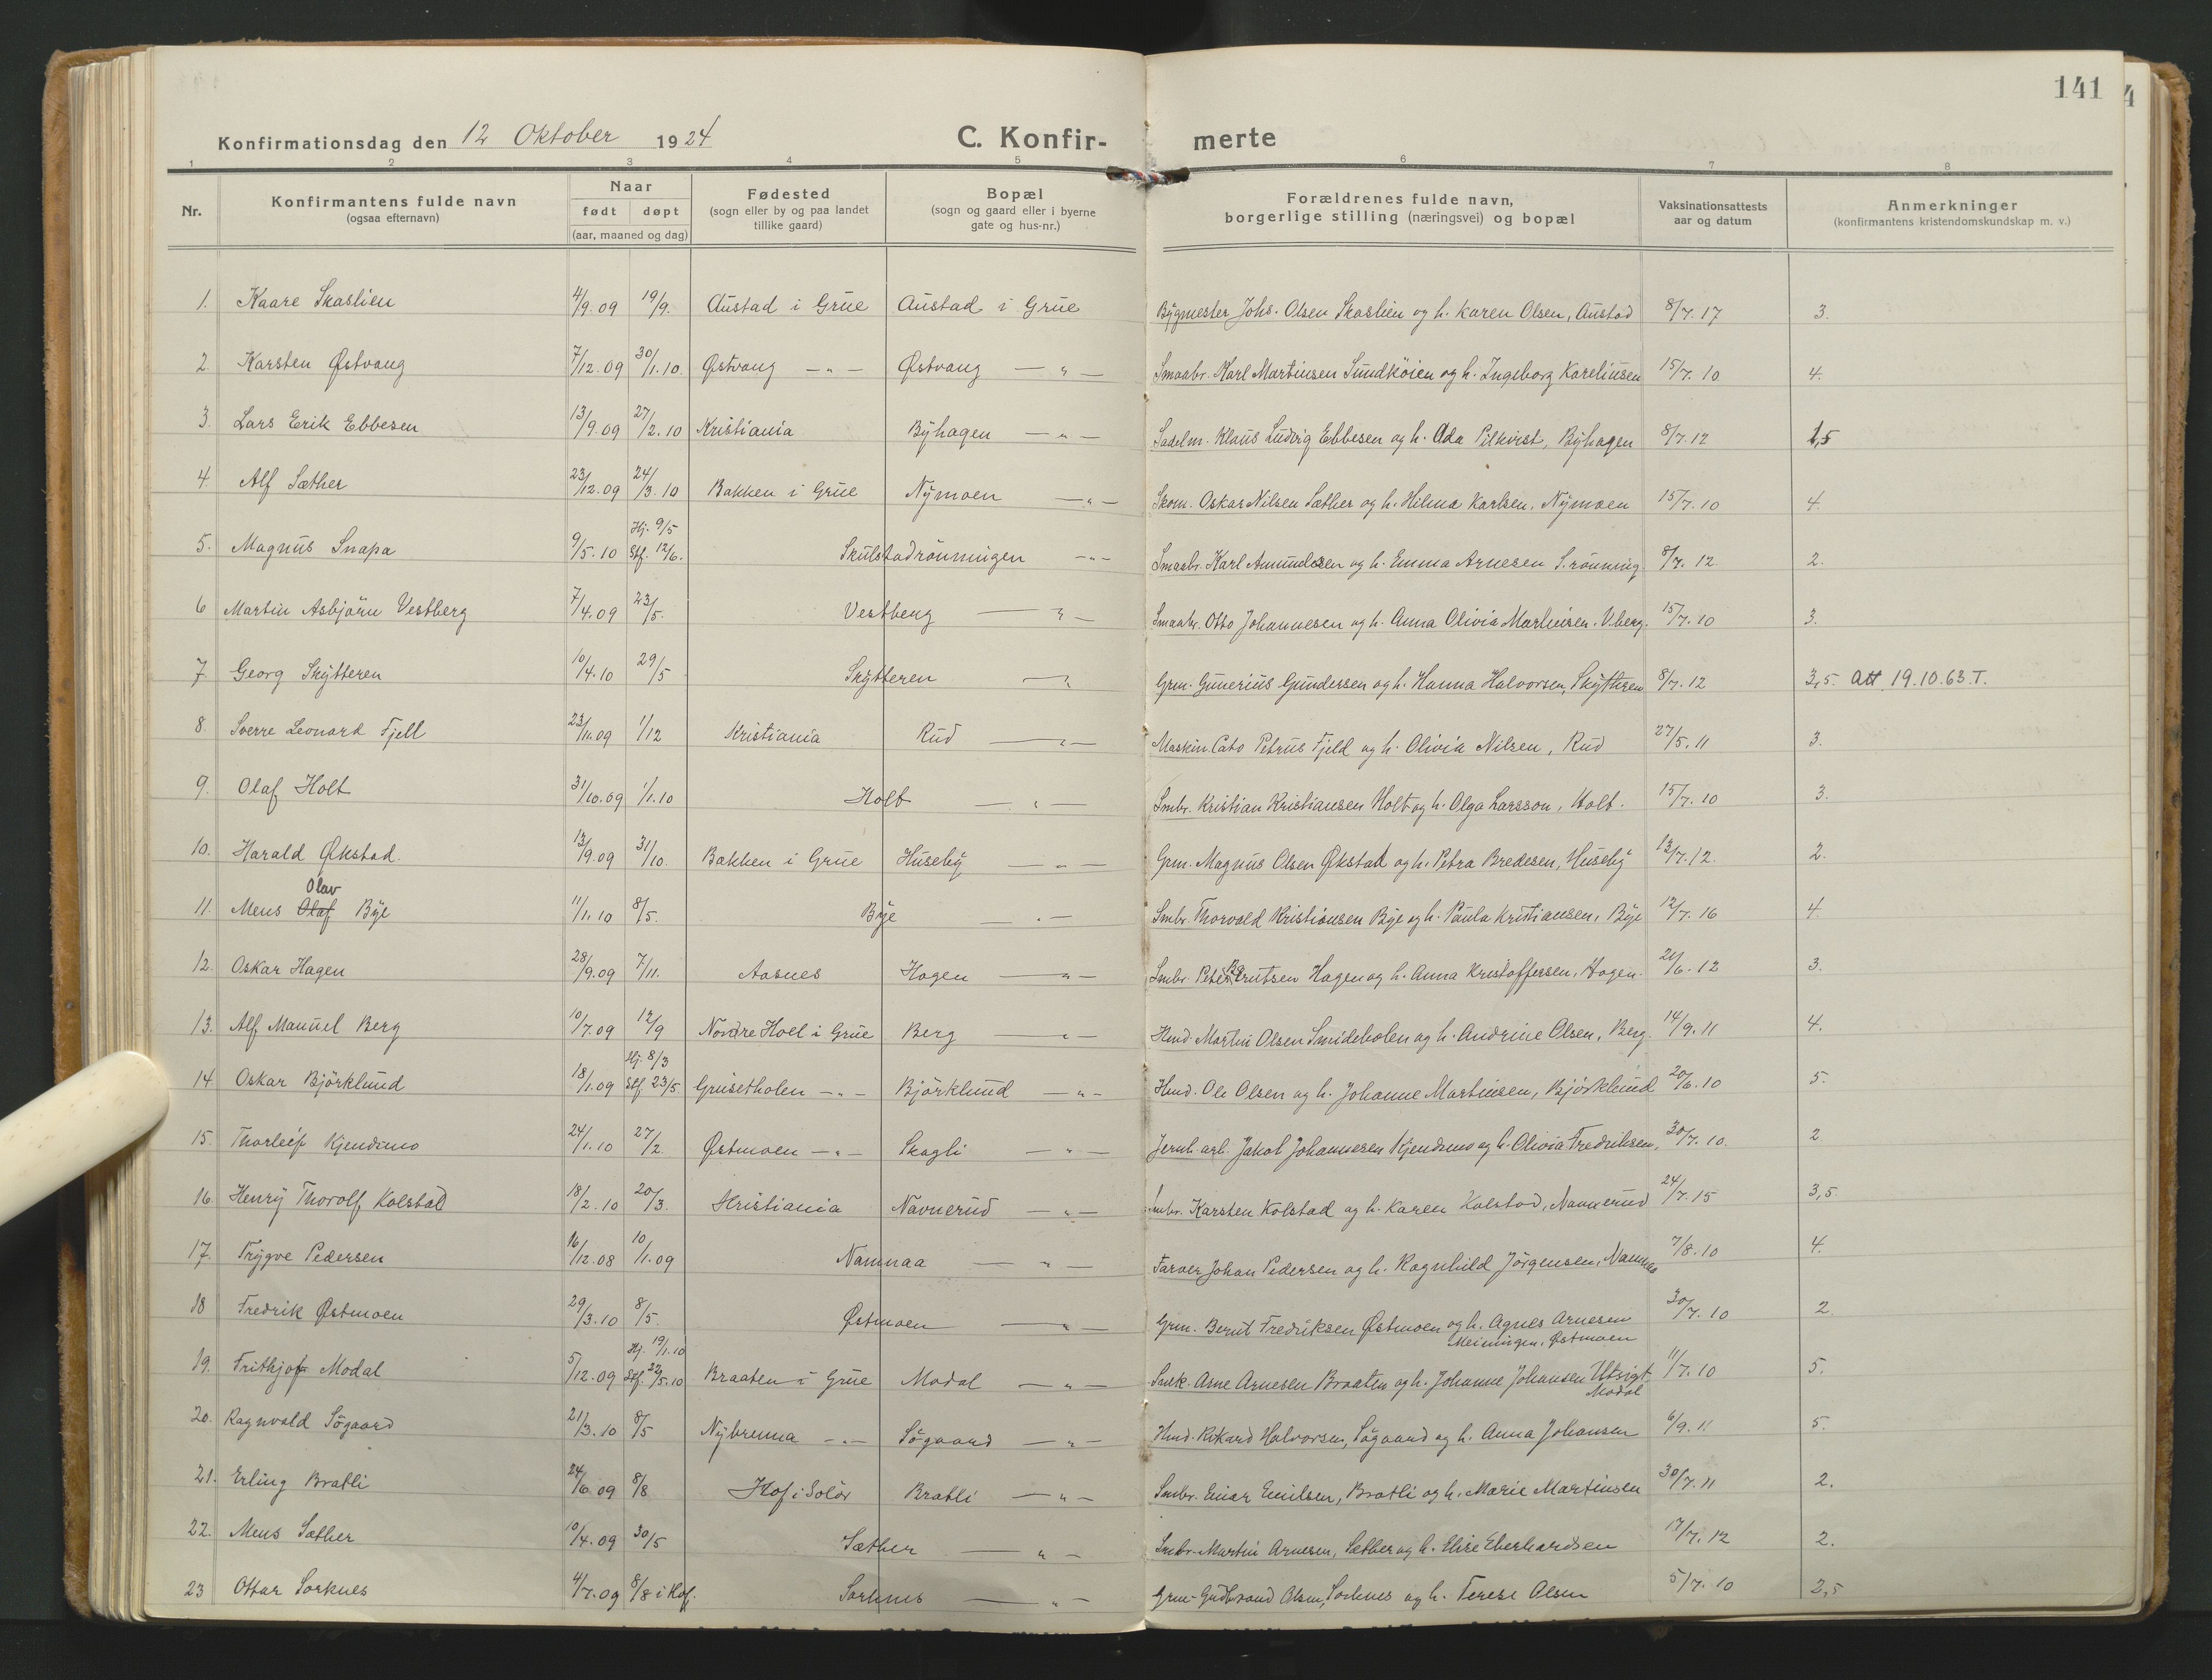 141
Konfirmationsdag den 12 Oktober 1924 C. Konfir- merte
1 2 3 4 5 6 7 8
Nr. Konfirmantens fulde navn (ogsaa efternavn) Naar født døpt (aar, maaned og dag) Fødested (sogn eller by og paa landet tillike gaard) Bopæl (sogn og gaard eller i byerne gate og hus-nr.) Forældrenes fulde navn, borgerlige stilling (næringsvei) og bopæl Vaksinationsattests aar og datum Anmerkninger (konfirmantens kristendomskundskap m. v.)
1. Kaare Skaslien 4/9.09 19/9. Austad i Grue Austad i Grue Bygmester Johs. Olsen Skaslien og h. Karen Olsen, Austad 8/7.17 3.
2. Karsten Østvang 7/12.09 30/1.10 Østvang — " — Østvang — " — Smaabr. Karl Martinsen Sundköien og h. Ingeborg Karelinsen 15/7.10 4.
3. Lars Erik Ebbesen 13/9.09 27/2.10 Kristiania Byhagen — " — Sadelm. Klaus Ludvig Ebbesen og h. Oda Pilkvist, Byhagen 8/7.12 1,5
4. Alf Sæther 23/12.09 24/3.10 Bakken i Grue Nymoen — " — Skom. Oskar Nilsen Sæther og h. Hilma Karlsen, Nymoen 15/7.10 4.
5. Magnus Snapa 9/5.10 Hj. 9/5 Stf. 12/6. Skulstadrönningen — " — Smaabr. Karl Amundsen og h. Emma Arnesen S.rönning. 8/7.12 2.
6 Martin Asbjörn Vestberg 7/4.09 23/5. Vestberg — " — Smaabr. Otto Johannesen og h. Anna Olivia Martinsen. V.berg. 15/7.10 3.
7. Georg Skytteren 10/4.10 29/5 Skytteren — " Grm. Gunerius Gundersen og h. Hanna Halvorsen, Skytteren 8/7.12 3,5. Att 19.10.63.T.
8. Sverre Leonard Fjell 23/11.09 1/12 Kristiania Rud — " — Maskin. Cato Petrus Fjeld og h. Olivia Nilsen, Rud 27/5.11 3.
9. Olaf Holt 31/10.09 1/1.10 Holt — " — Smbr. Kristian Kristiansen Holt og h. Olga Larsson, Holt. 15/7.10 3.
10. Harald Økstad. 13/9.09 31/10. Bakken i Grue Huseby — " — Grm. Magnus Olsen Økstad og h. Petra Bredesen, Huseby 13/7.12. 2.
Olav
11. Mens Olaf Bye 11/1.10 8/5. Bye — " — Smbr. Thorvald Kristiansen Bye og h. Paula Kristiansen, Bye 12/7.16 4.
12. Oskar Hagen 28/9.09 7/11. Aasnes Hagen — " — Smbr. Peter Hagen og h. Anna Kristoffersen, Hagen. 21/6.12 3.
13. Alf Manuel Berg 10/7.09 12/9 Nordre Hoel i Grue Berg — " — Hmd. Martin Olsen Smideholen og h. Andrine Olsen, Berg. 14/9.11 4.
14. Oskar Björklund 18/1.09 Hj. 8/3 Stf 23/5. Grusetholen — " — Björklund — " — Hmd. Ole Olsen og h. Johanne Martinsen, Björklund 20/6.10 5.
15. Thorleif Kjendsmo 24/1.10 27/2. Østmoen — " — Skogli — " — Jernb. arb. Jakob Johannesen Kjendsmo og h. Olivia Fredriksen, 30/7.10. 2
16. Henry Thorolf Kolstad 18/2.10 20/3. Kristiania Navnerud — " — Smbr. Karsten Kolstad og h. Karen Kolstad, Navnerud 24/7.15 3,5.
17. Trygve Pedersen 16/12.08 10/1.09 Namnaa — " — Farver Johan Pedersen og h. Ragnhild Jörgensen, Namnaa 7/8.10 4.
18 Fredrik Østmoen 29/3.10 8/5. Østmoen — " — Grm. Bernt Fredriksen Østmoen og h. Agnes Arnesen 30/7.10 2.
Meiningen, Østmoen
19. Frithjof Modal 5/12.09 Hj. 19/1.10 Stf. 22/5.10 Braaten i Grue Modal — " — Smk. Arne Arnesen Braaten og h. Johanne Johansen Utsigt 11/7.10 5.
Modal
20. Ragnvald Sögaard 21/3.10 8/5 Nybrenna — " — Sögaard — " — Hmd. Rikard Halvorsen, Sögaard og h. Anna Johansen 6/9.11 5.
21. Erling Bratli 24/6 09 8/8 Hof i Solör Bratli — " — Smbr. Einar Emilsen, Bratli og h. Marie Martinsen 30/7.11 2.
22. Mens Sæther 10/4.09 30/5 Sæther — " — Smbr. Martin Arnesen, Sæther og h. Elise Eberhardsen 17/7.12 2.
23 Ottar Sorknes 4/7.09 8/8 i Hof. Sorknes — " — Grm. Gudbrand Olsen, Sorknes og h. Terese Olsen 5/7.10 2,5